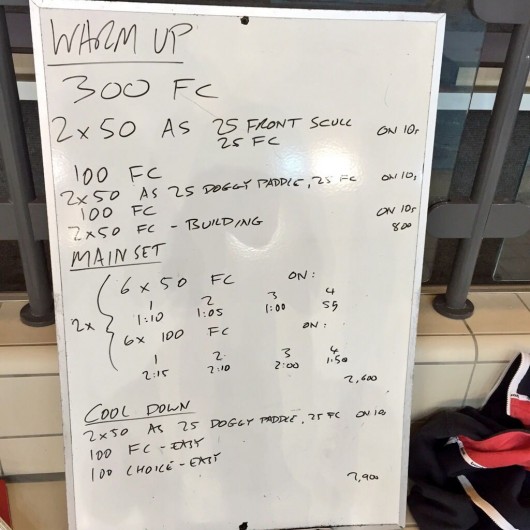 WARM UP
300 FC
2x50 AS 25 FRONT SCULL ON 10s
25 FC
100 FC
2x50 AS 25 DOGGY PADDLE, 25 FC ON 10s
100 FC ON 10s
2x50 FC - BUILDING 800
MAIN SET
2x { 6 x 50 FC ON:
1 2 3 4
1:10 1:05 1:00 55
6x 100 FC ON:
1 2. 3 4
2:15 2:10 2:00 1:50
2,600
COOL DOWN
2x50 AS 25 DOGGY PADDLE, 25 FC ON 10s
100 FC - EASY
100 CHOICE - EASY
2,900